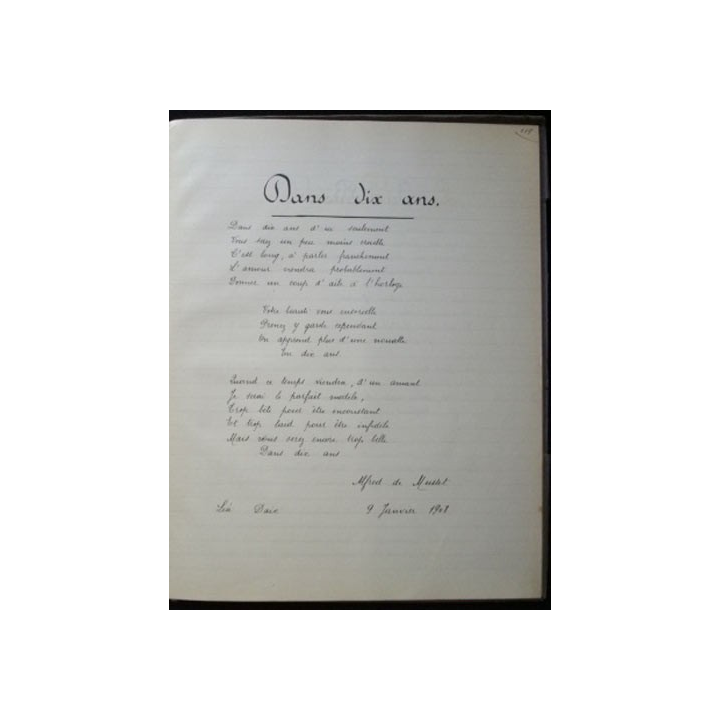 Dans dix ans.
Dans dix ans d'ici seulement
Vous serez un peu moins cruelle
C'est long, à parler franchement
L'amour viendra probablement
Donner un coup d'aile à l'horloge
Votre beauté vous ensorcelle
Prenez y garde cependant
On apprend plus d'une nouvelle
En dix ans
Quand ce temps viendra, d'un amant
Je serai le parfait modèle,
Trop bête pour être inconstant
Et trop laid pour être infidèle
Mais vous serez encore trop belle
Dans dix ans
Alfred de Musset
9 Janvier 1908